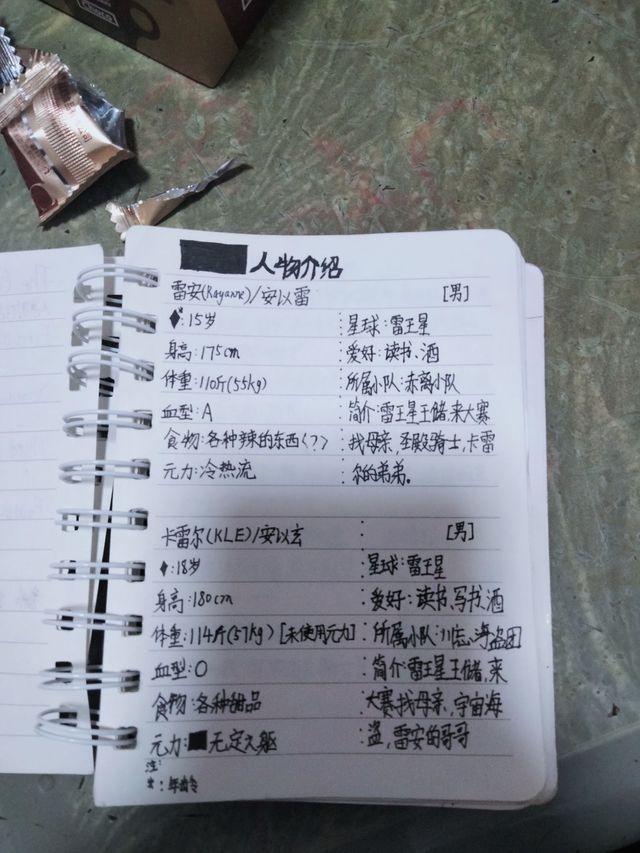 人物介绍
雷安(Rayanne)/安以雷 [男]
♦:15岁 :星球:雷王星
身高:175cm :爱好:读书、酒
体重:110斤(55kg) :所属小队:赤离小队
血型:A :简介:雷王星王储,来大赛
食物:各种辣的东西(?) :找母亲,圣殿骑士,卡雷
元力:冷热流 :尔的弟弟。
卡雷尔(KLE)/安以玄 [男]
♦:18岁 :星球:雷王星
身高:180cm :爱好:读书、写书、酒
体重:114斤(57kg)[未使用元力] :所属小队: 海盗团
血型:O :简介:雷王星王储,来
食物:各种甜品 大赛找母亲,宇宙海
元力: 无定 :盗,雷安的哥哥
注:
♦:年龄